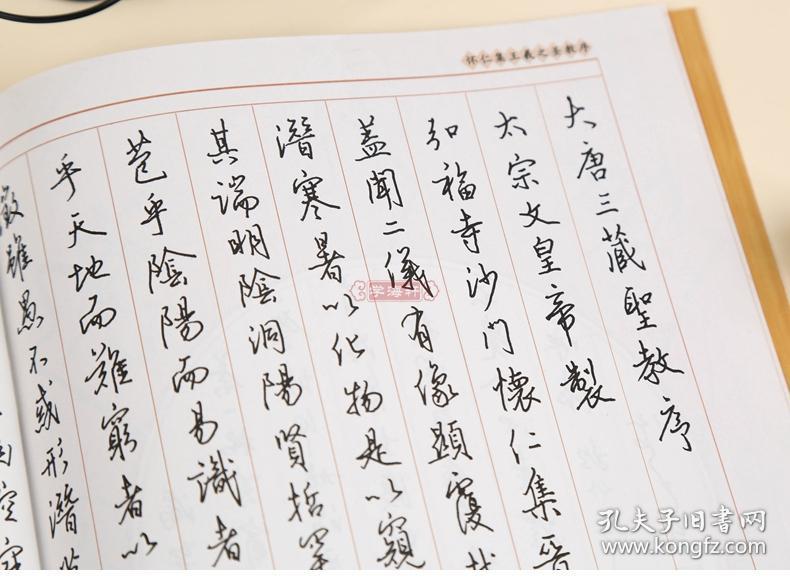 怀仁集王羲之圣教序
大唐三藏聖教序
太宗文皇帝製
弘福寺沙门懷仁集晋
盖聞二儀有像顯覆
潛寒暑以化物是以窺
其端明陰洞陽贤哲罕
苞乎陰陽而易識者
乎天地而難窮者以
徵雖愚不惑形潛
学海轩
孔夫子旧书网
www.kongfz.com